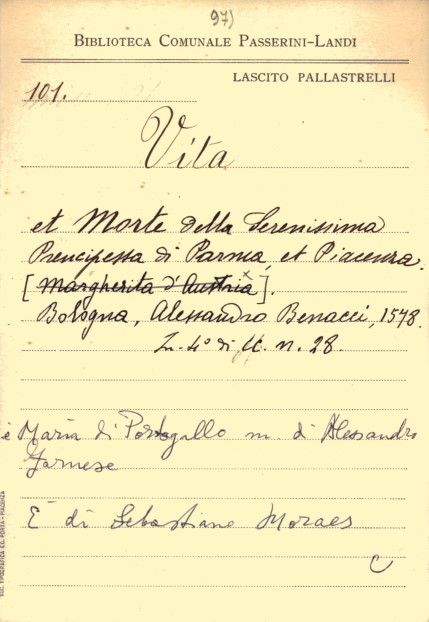 97)
BIBLIOTECA COMUNALE PASSERINI-LANDI
LASCITO PALLASTRELLI
101.
Vita
et Morte della Serenissima
Prencipessa di Parma et Piacenza.
[Margherita d'Austria x].
Bologna, Alessandro Benacci, 1578.
In-4° di cc. n. 28.
è Maria di Portogallo m. di Alessandro
Farnese
È di Sebastiano Moraes
C